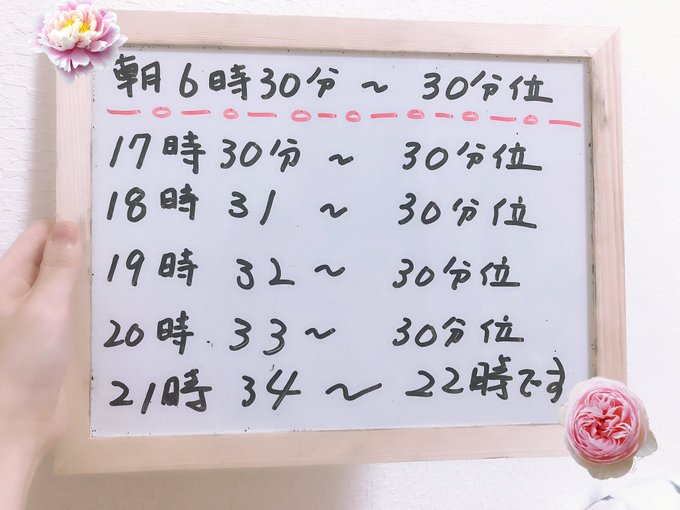 朝6時30分～ 30分位
17時30分～ 30分位
18時31～ 30分位
19時32～ 30分位
20時33～ 30分位
21時34～22時です